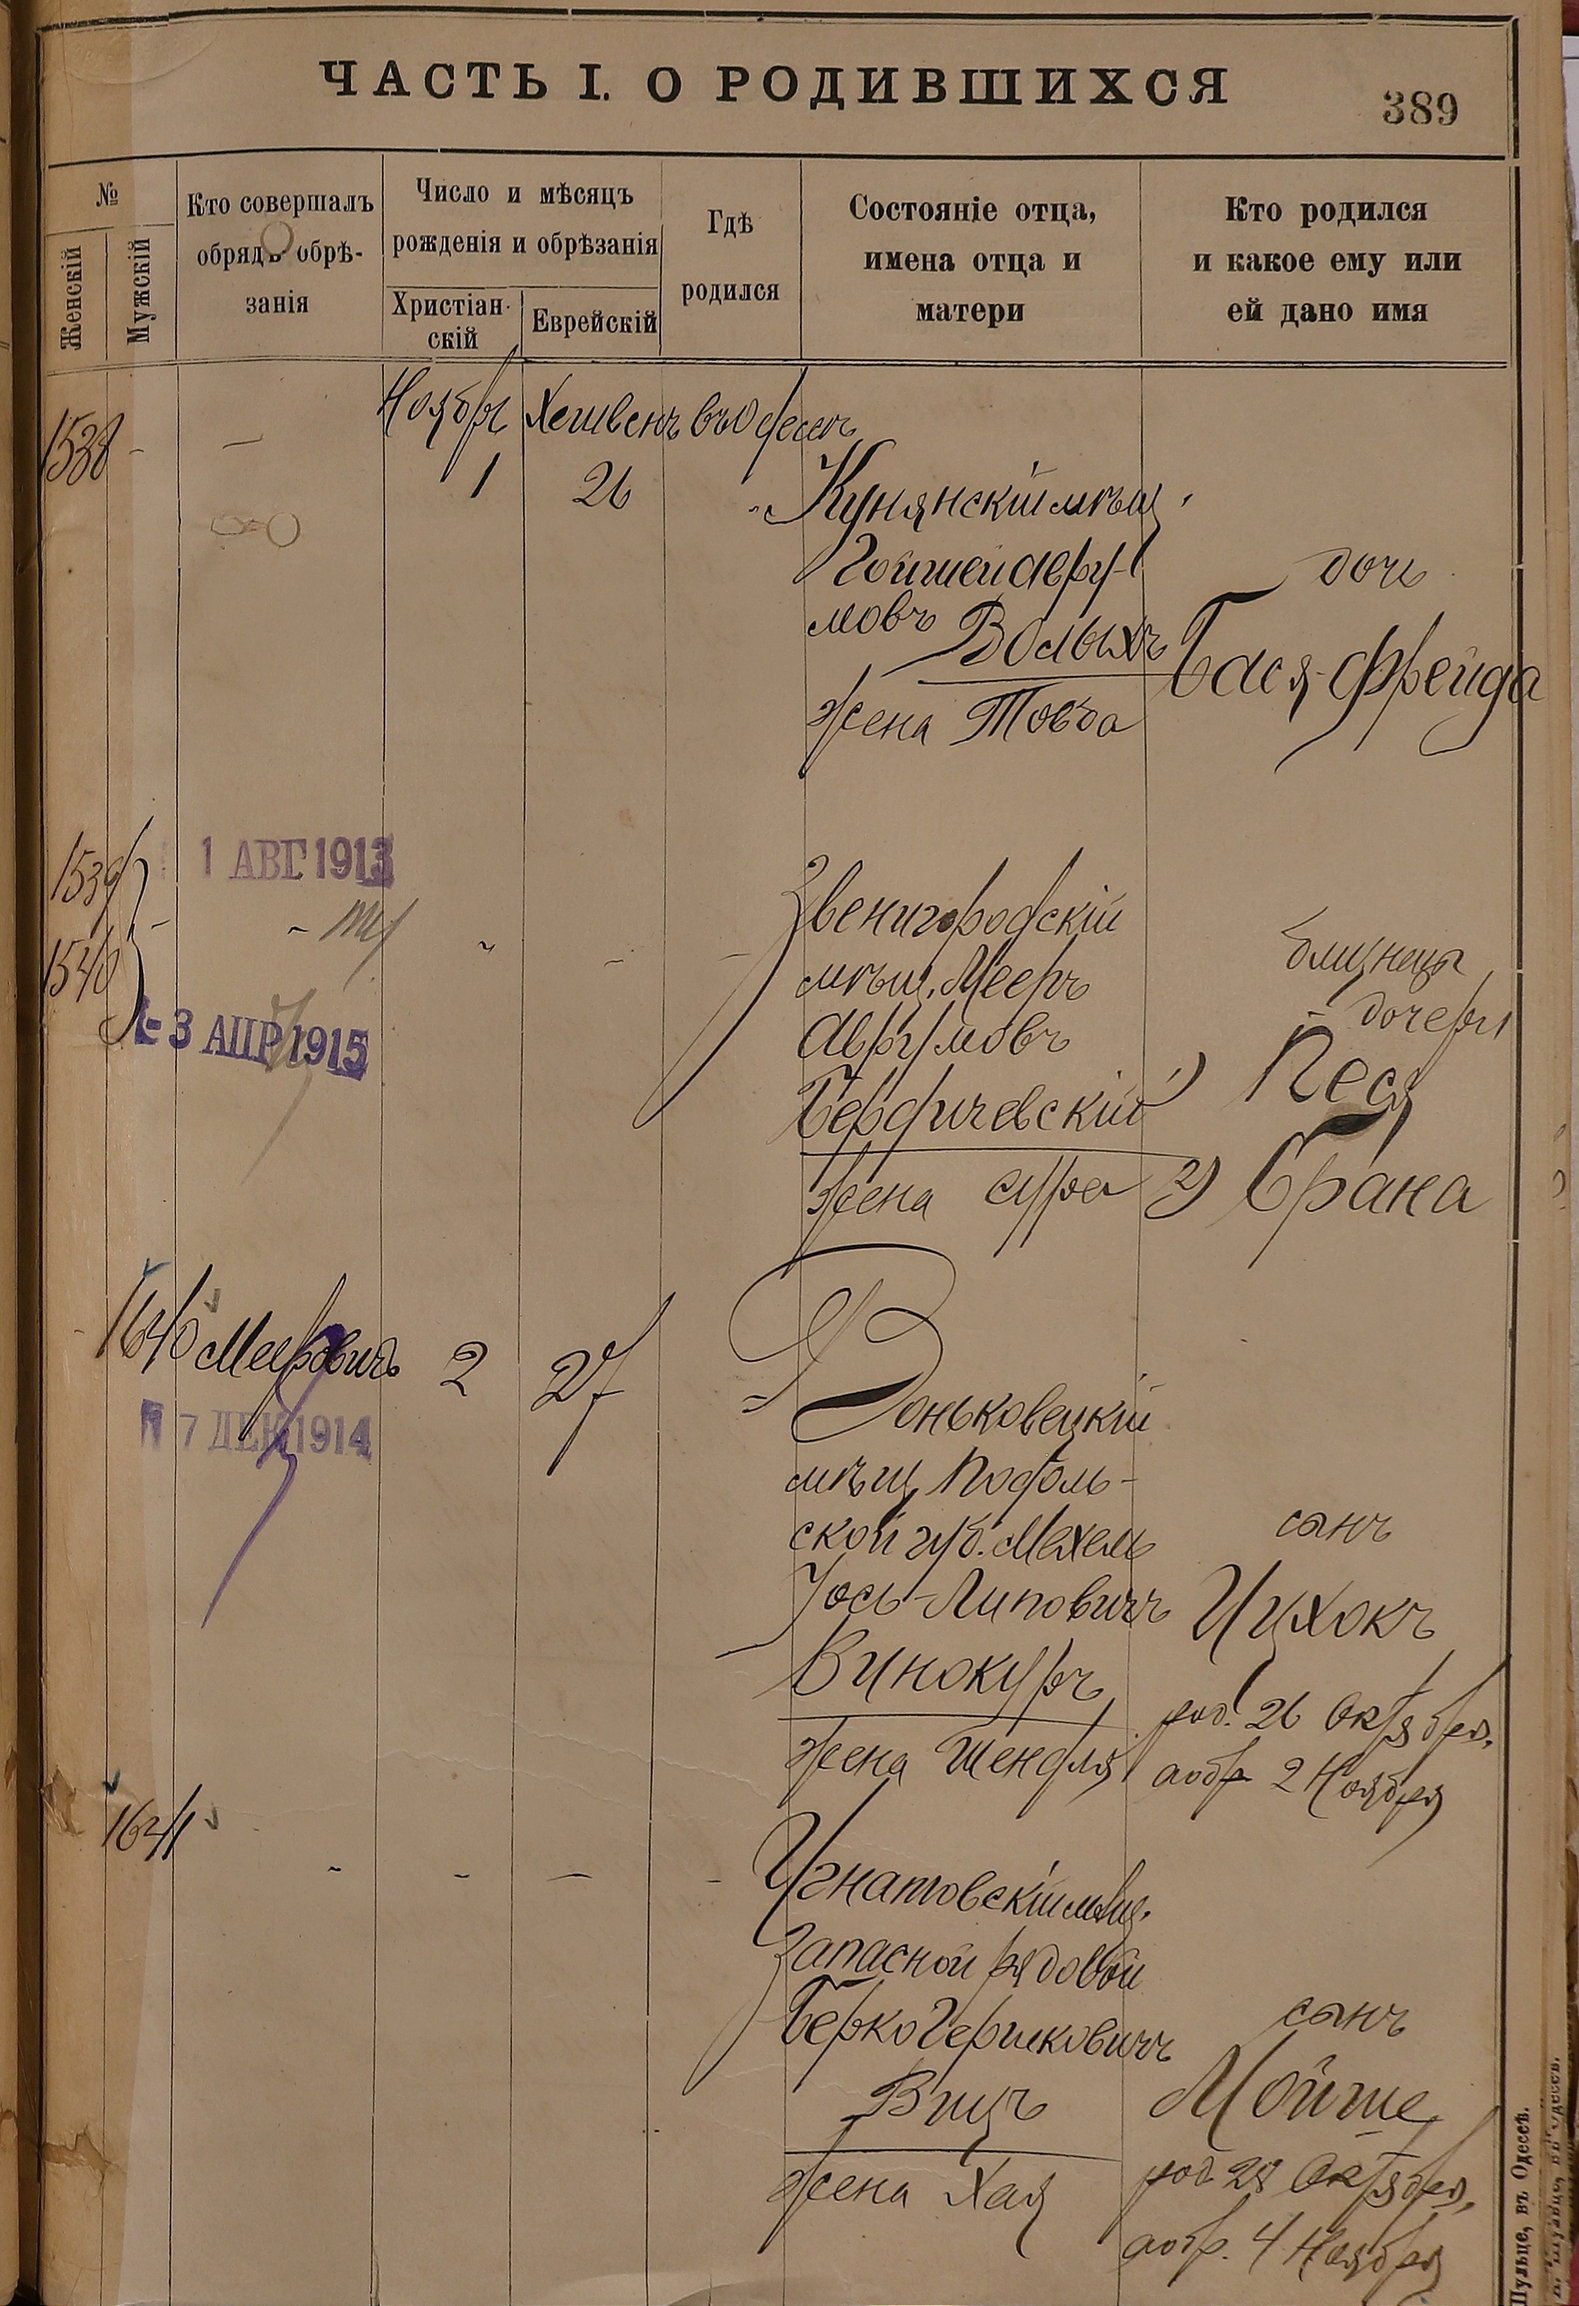 ЧАСТЬ I. О РОДИВШИХСЯ
389
№
Женскій
Мужскій
Кто совершалъ
обрядъ обрѣ-
занія
Число и мѣсяцъ
рожденія и обрѣзанія
Христіан-
скій
Еврейскій
Гдѣ
родился
Состояніе отца,
имена отца и
матери
Кто родился
и какое ему или
ей дано имя
1538 - —
Ноябрь Хешвенъ въ Одессѣ
1 26
Кунянскій мѣщ.
Гойшей Авру-
мовъ Волыхъ
жена Товба
дочь
Бася-Фрейда
1539
1540
1 АВГ 1913
- 3 АПР 1915
Звенигородскій
мѣщ. Мееръ
Аврумовъ
Бердичевскій
жена Сура
близнецы
- дочери
1) Песя
2) Брана
1640 Мееровичъ 2 27
7 ДЕК 1914
Доньковецкій
мѣщ. Подоль-
ской губ. Мехель
Іось-Липовичъ
Винокуръ
жена Шендля
сынъ
Ицхокъ
род. 26 Октября.
обр 2 Ноября
1641 - - — -
Игнатовскій мѣщ.
запасной рядовой
Берко Гершковичъ
Вицъ
жена Хая
сынъ
Мойше
род 28 Октября,
обр. 4 Ноября
Шульце, въ Одессѣ.